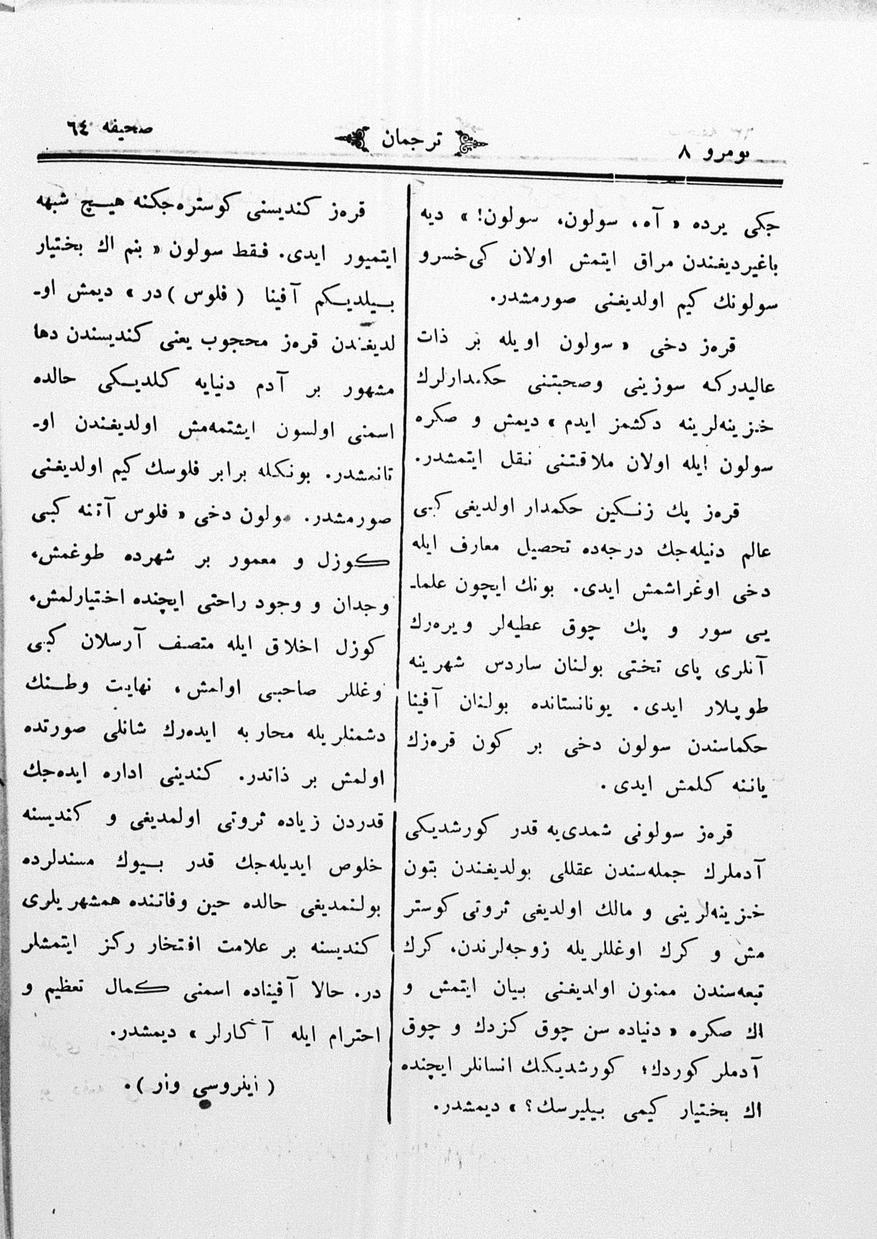 نومرو ٨
ترجمان
صحیفه ٦٤
جکی یرده « آه، سولون، سولون! » دیه
باغیردیغندن مراق ایتمش اولان کی‌خسرو
سولونك کیم اولدیغنی صورمشدر.
قره‌ز دخی « سولون اویله بر ذات
عالیدرکه سوزینی وصحبتنی حکمدارلرك
خزینه‌لرینه دکشمز ایدم » دیمش و صکره
سولون ایله اولان ملاقتنی نقل ایتمشدر.
قره‌ز پك زنکین حکمدار اولدیغی کبی
عالم دنیله‌جك درجه‌ده تحصیل معارف ایله
دخی اوغراشمش ایدی. بونك ایچون علما‌ـ
یی سور و پك چوق عطیه‌لر ویره‌رك
آنلری پای تختی بولنان ساردس شهرینه
طوپلار ایدی. یونانستانده بولنان آفینا
حکماسندن سولون دخی بر کون قره‌زك
یاننه کلمش ایدی.
قره‌ز سولونی شمدی‌یه قدر کورشدیکی
آدملرك جمله‌سندن عقللی بولدیغندن بتون
خزینه‌لرینی و مالك اولدیغی ثروتی کوستر
مش و کرك اوغللریله زوجه‌لرندن، کرك
تبعه‌سندن ممنون اولدیغنی بیان ایتمش و
اك صکره « دنیاده سن چوق کزدك و چوق
آدملر کوردك؛ کورشدیکك انسانلر ایچنده
اك بختیار کیمی بیلیرسك؟ » دیمشدر.
قره‌ز کندیسنی کوستره‌جکنه هیچ شبهه
ایتمیور ایدی. فقط سولون « بنم اك بختیار
بیلدیکم آفینا ( فلوس )در » دیمش او‌ـ
لدیغندن قره‌ز محجوب یعنی کندیسندن دها
مشهور بر آدم دنیایه کلدیکی حالده
اسمنی اولسون ایشتمه‌مش اولدیغندن او‌ـ
تانمشدر. بونکله برابر فلوسك کیم اولدیغنی
صورمشدر. سولون دخی « فلوس آتنه کبی
کوزل و معمور بر شهرده طوغمش،
وجدان و وجود راحتی ایچنده اختیارلمش،
کوزل اخلاق ایله متصف آرسلان کبی
وغللر صاحبی اولمش، نهایت وطننك
دشمنلریله محاربه ایده‌رك شانلی صورتده
اولمش بر ذاتدر. کندینی اداره ایده‌جك
قدردن زیاده ثروتی اولمدیغی و کندیسنه
خلوص ایدیله‌جك قدر بیوك مسندلرده
بولنمدیغی حالده حین وفاتنده همشهریلری
کندیسنه بر علامت افتخار رکز ایتمشلر
در. حالا آفیناده اسمنی کمال تعظیم و
احترام ایله آکارلر » دیمشدر.
( ایلروسی وار ).